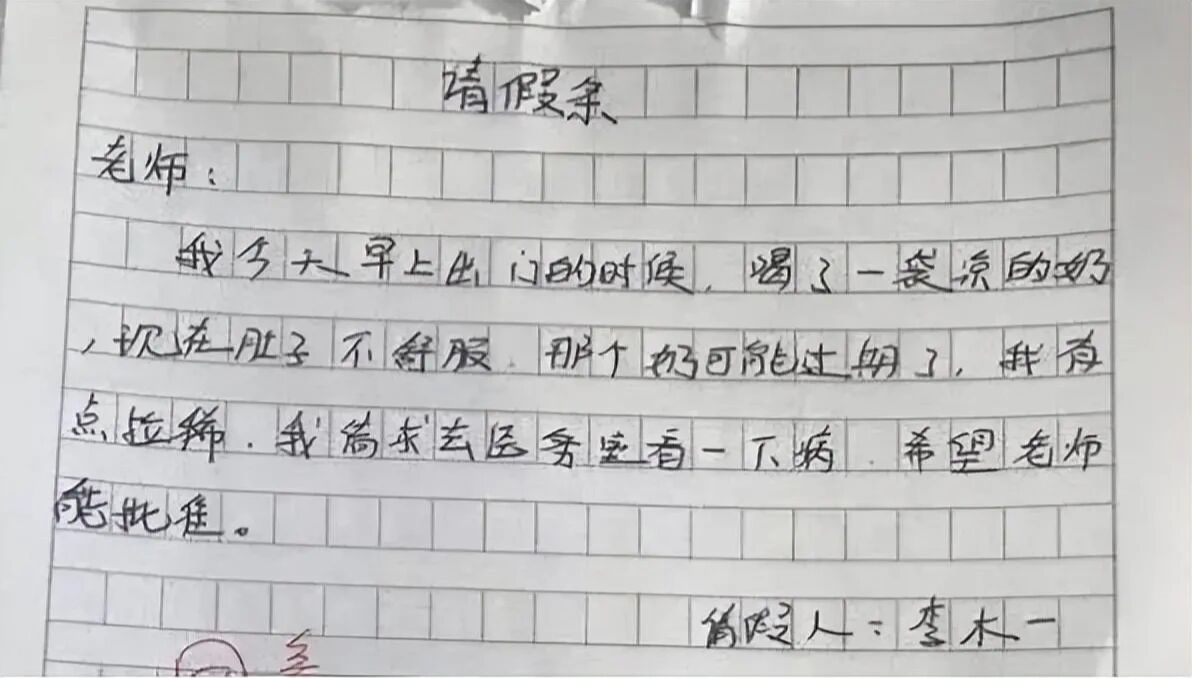 请假条
老师：
我今天早上出门的时候，喝了一袋凉的奶
，现在肚子不舒服，那个奶可能过期了，我有
点拉稀，我请求去医务室看一下病，希望老师
能批准。
请假人：李木一